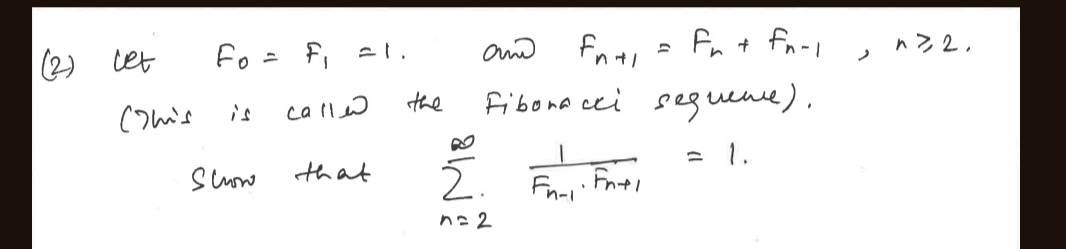 (2) Let F₀ = F₁ = 1. and Fₙ₊₁ = Fₙ + Fₙ₋₁ , n ≥ 2.
(This is called the Fibonacci sequence).
Show that ∞ Σ n=2 1 / (Fₙ₋₁ · Fₙ₊₁) = 1.